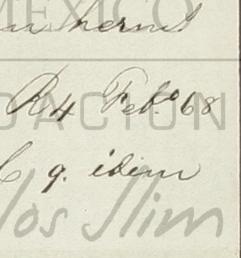 MEXICO
R4 Feb.o 68
DACION
g. idem
los Slim